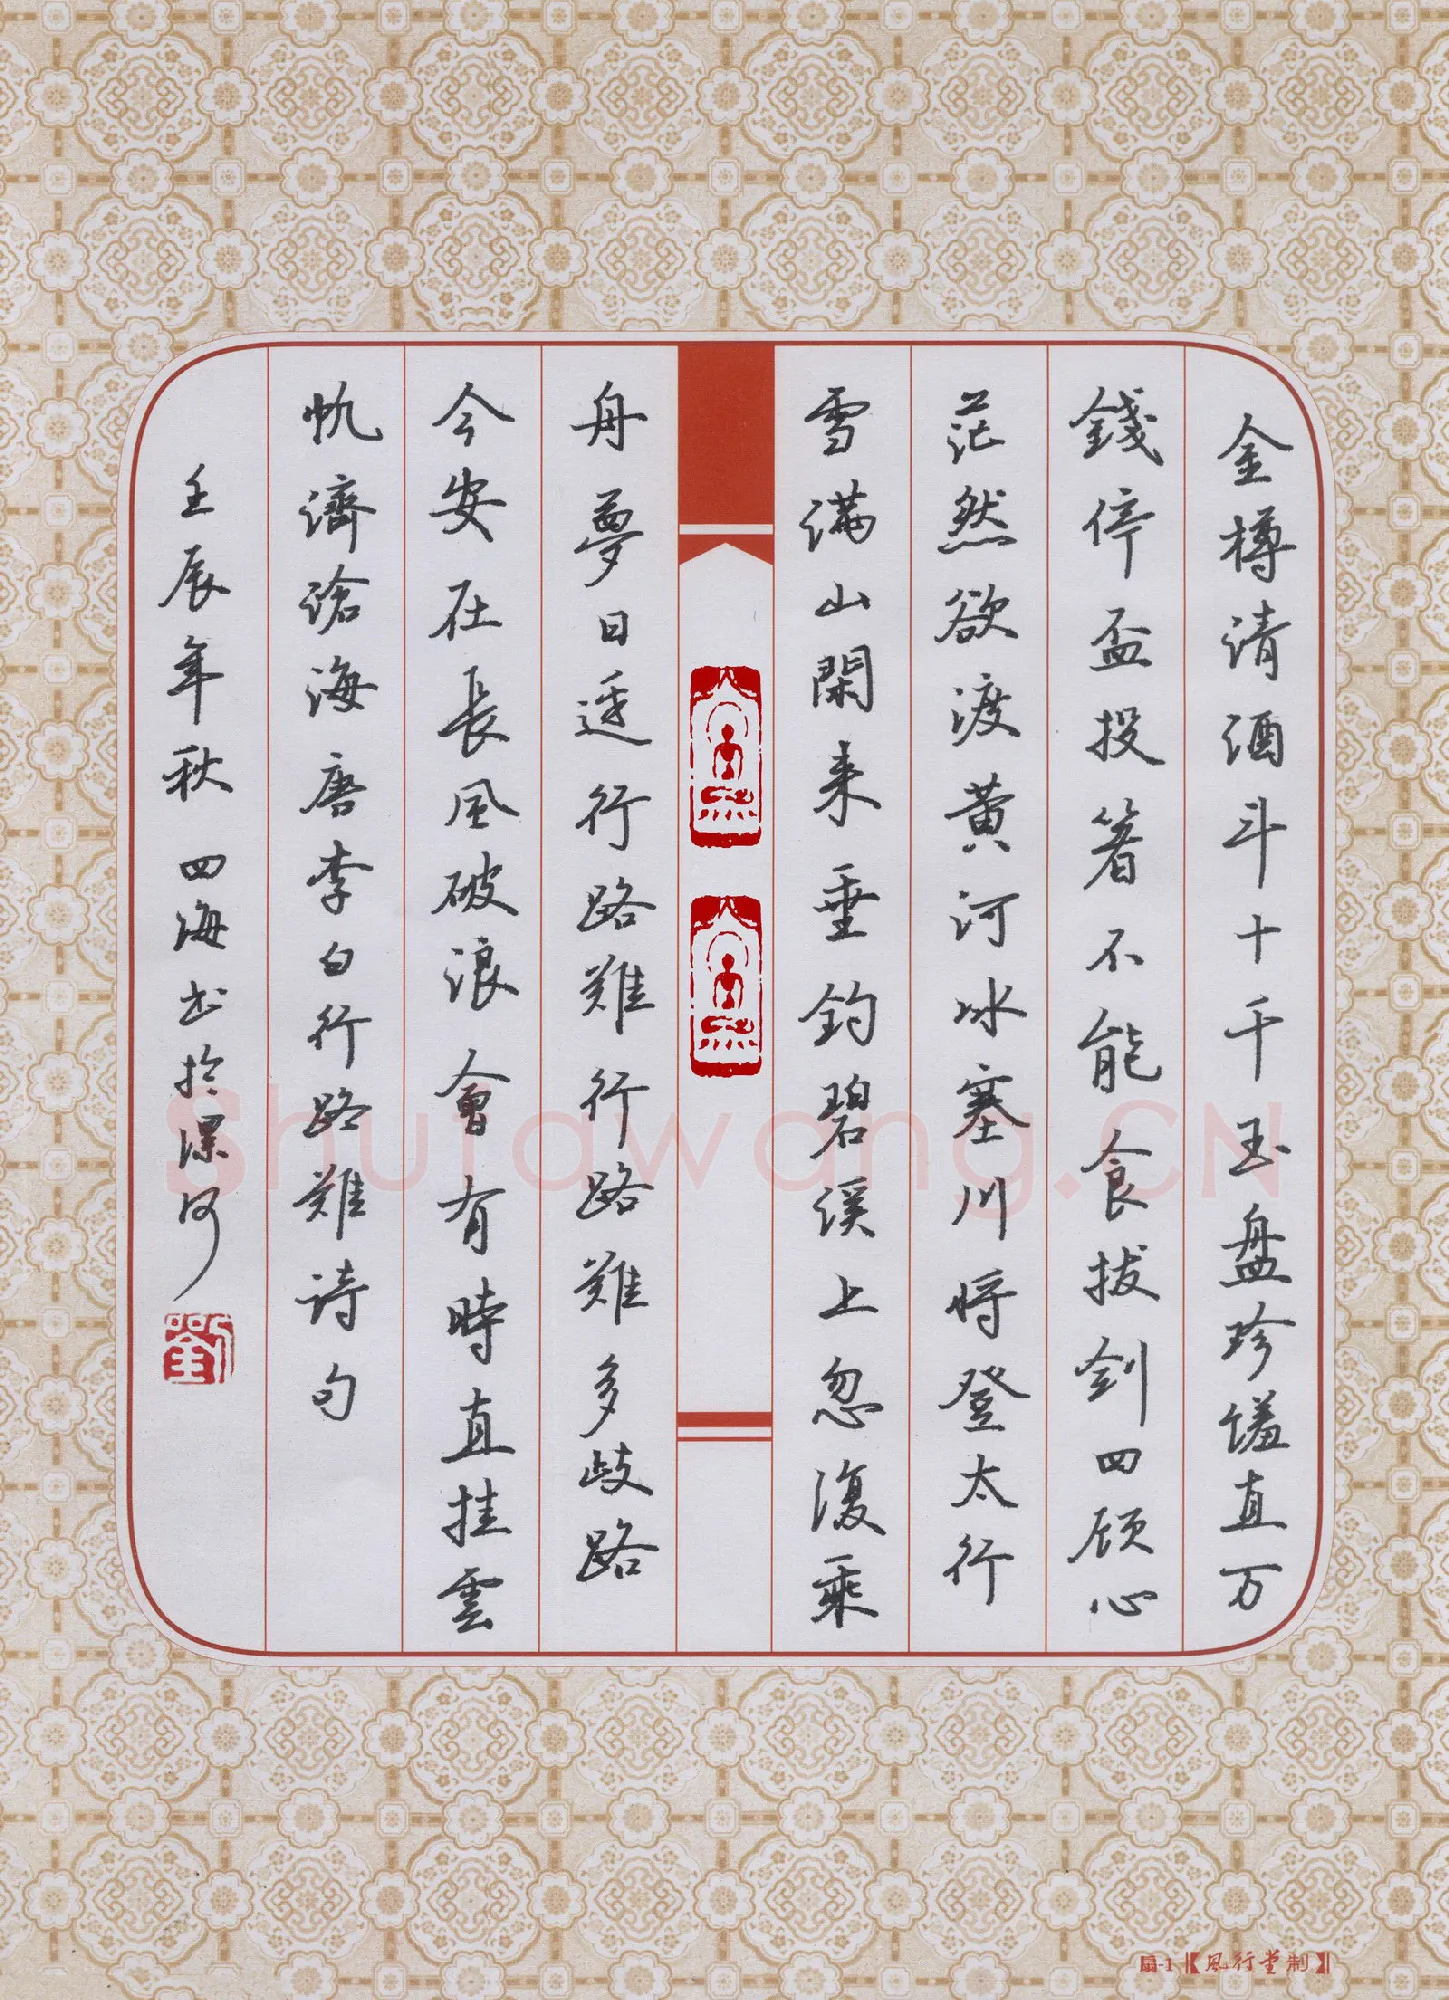 金樽清酒斗十千玉盘珍馐直万
錢停盃投箸不能食拔剑四顾心
茫然欲渡黄河冰塞川将登太行
雪满山閑来垂钓碧溪上忽復乘
舟夢日边行路難行路難多歧路
今安在長風破浪會有時直挂雲
帆濟滄海唐李白行路難诗句
壬辰年秋 四海书於漯河
劉
Shufawang.CN
扇-1【風行堂制】